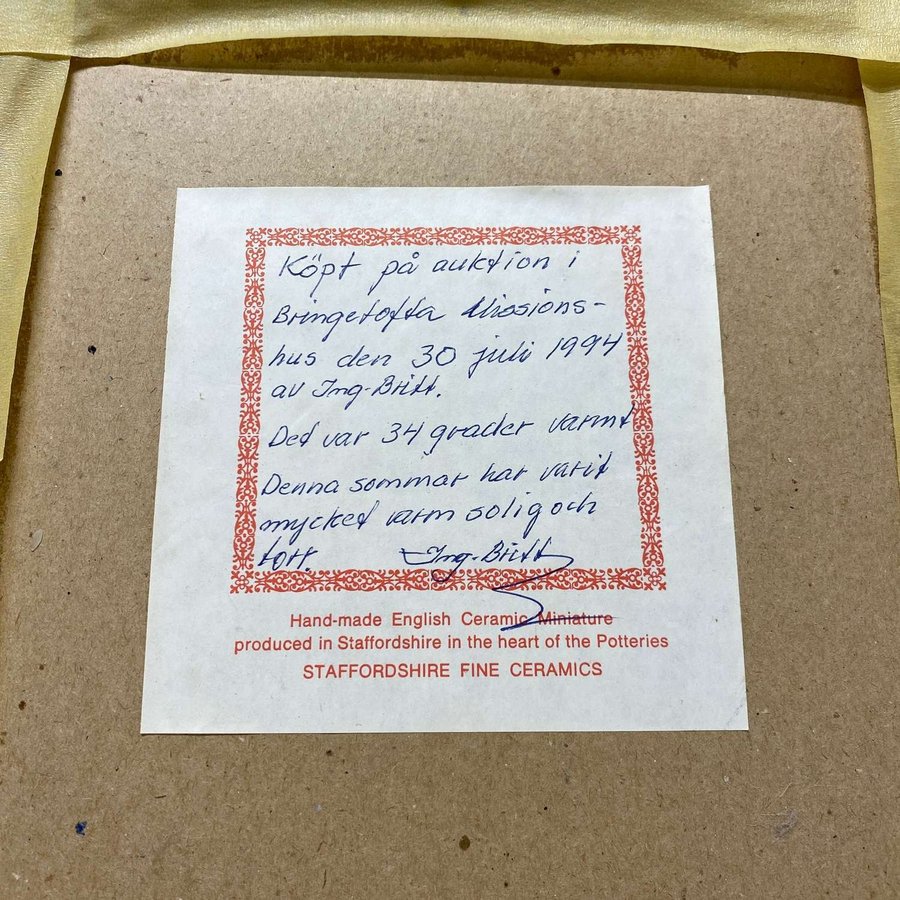 Köpt på auktion i
Bringetofta Missions-
hus den 30 juli 1994
av Ing-Britt.
Det var 34 grader varmt
Denna sommar har varit
mycket varm solig och
torr. Ing-Britt
Hand-made English Ceramic Miniature
produced in Staffordshire in the heart of the Potteries
STAFFORDSHIRE FINE CERAMICS